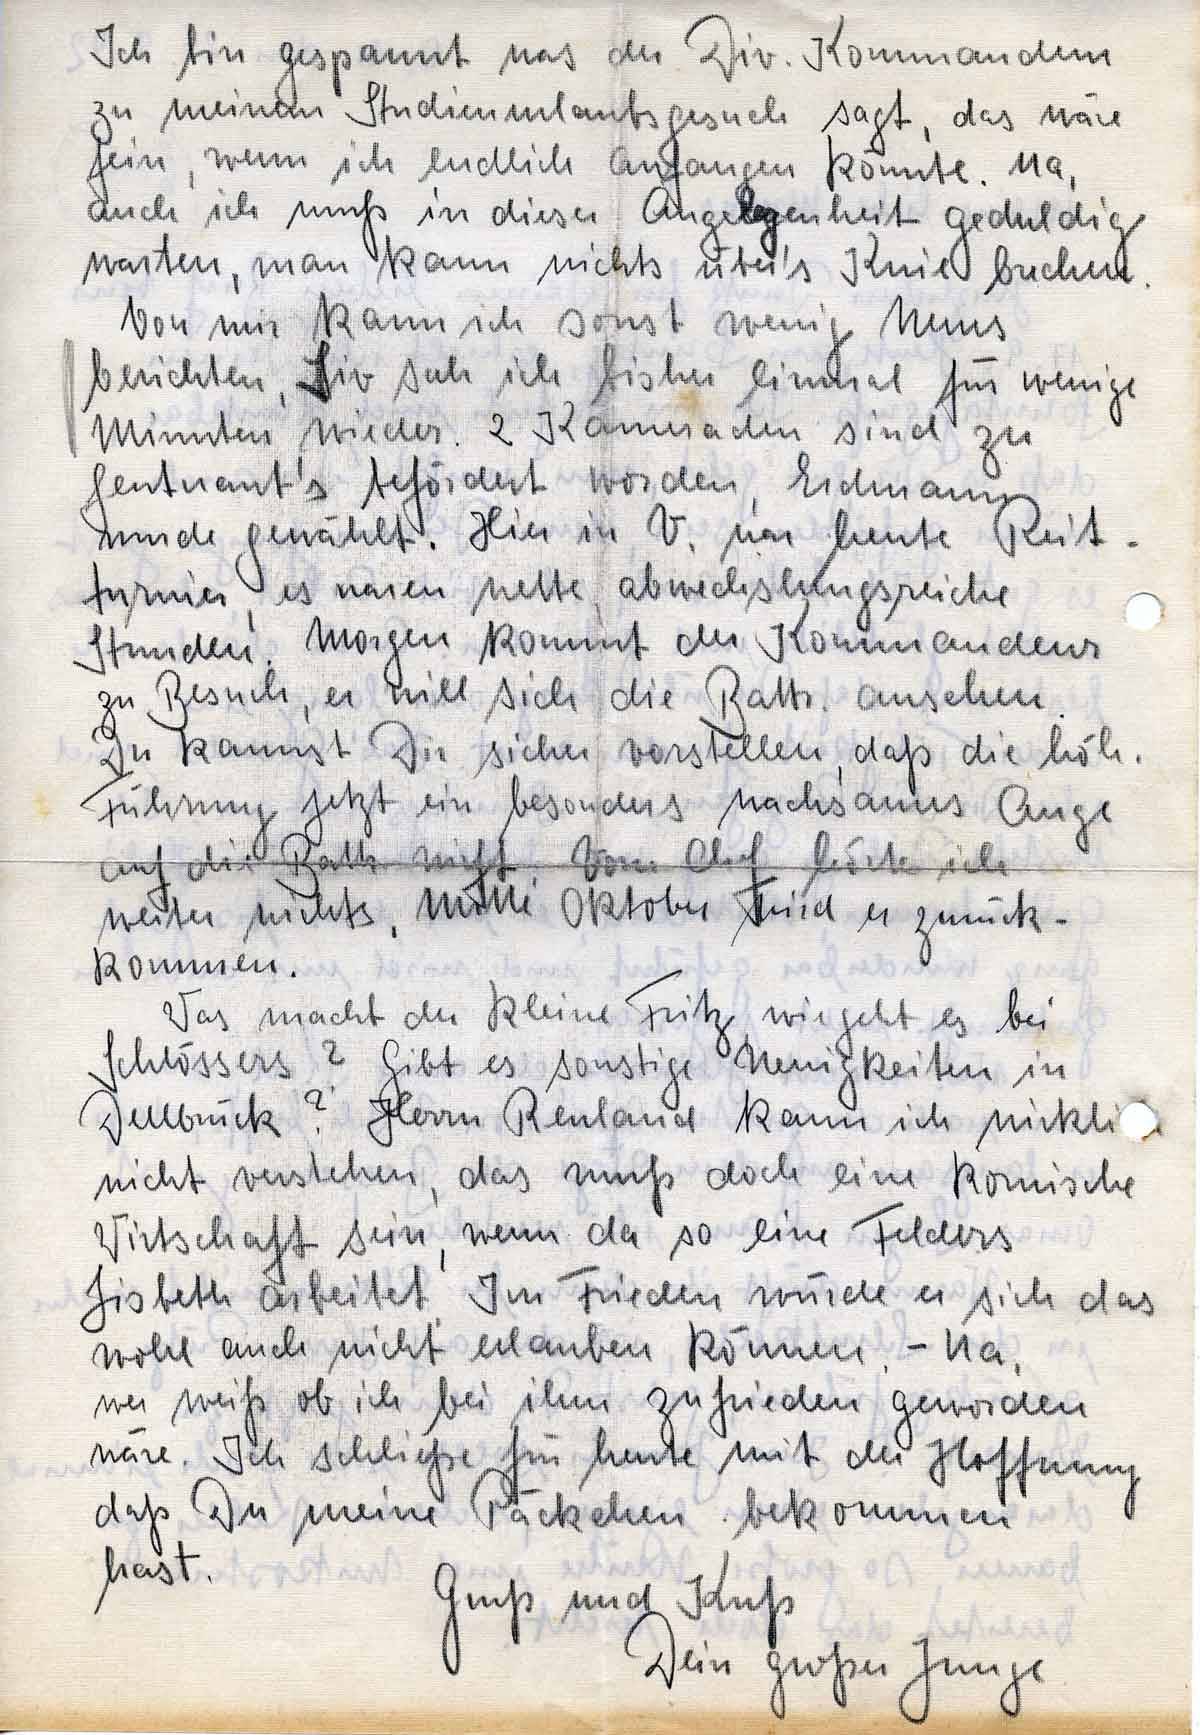 Ich bin gespannt was der Div. Kommandeur
zu meinem Studienurlaubsgesuch sagt, das wäre
fein, wenn ich endlich anfangen könnte. Na,
auch ich muß in dieser Angelegenheit geduldig
warten, man kann nichts über's Knie brechen.
Von mir kann ich sonst wenig Neues
berichten, Liv sah ich bisher einmal für wenige
Minuten wieder. 2 Kameraden sind zu
Leutnant's befördert worden, Erdmann
wurde gewählt. Hier in V. war heute Reit-
turnier, es waren nette abwechslungsreiche
Stunden. Morgen kommt der Kommandeur
zu Besuch, er will sich die Battr. ansehen.
Du kannst Dir sicher vorstellen, daß die höh.
Führung jetzt ein besonders wachsames Auge
auf die Battr. wirft. Vom Chef hörte ich
weiter nichts, Mitte Oktober wird er zurück-
kommen.
Was macht der kleine Fritz, wie geht es bei
Schlössers? Gibt es sonstige Neuigkeiten in
Dellbrück? Herrn Renland kann ich wirkli
nicht verstehen, das muß doch eine komische
Wirtschaft sein, wenn da so eine Felders
Lisbeth arbeitet. Im Frieden würde er sich das
wohl auch nicht erlauben können. - Na,
wer weiß ob ich bei ihm zufrieden geworden
wäre. Ich schließe für heute mit der Hoffnung
daß Du meine Päckchen bekommen
hast.
Gruß und Kuß
Dein großer Junge